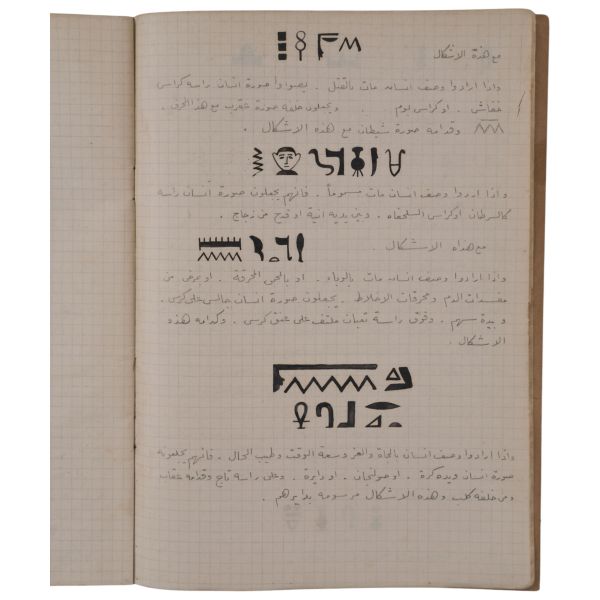 مع هذة الاشكال
واذا ارادوا وصف انسان مات بالقتل . يصوروا صورة انسان راسة كراس
خفاش . او كراس بوم . ويجعلون خلفه صورة عقرب مع هذا الحرف .
وقدامه صورة شيطان مع هذه الاشكال .
واذا اردوا وصف انسان مات مسموماً . فانهم يجعلون صورة انسان راسه
كالسرطان او كراس السلحفاه . وبين يديه انية او قدح من زجاج .
مع هذاه الاشكال .
واذا ارادوا وصف انسان مات بالوباء . او بالحمى المحرقة . او بمرض من
مفسدات الدم ومحرقات الاخلاط . يجعلون صورة انسان جالس على كرسى .
وبيدة سهم . وفوق راسة ثعبان ملتف على عنق كرسى . وكدامه هذه
الاشكال .
واذا ارادوا وصف انسان بالجاة والعز وسعة الوقت وطيب الحال . فانهم يجعلونه
صورة انسان وبيده كرة . او صولجان . او دايرة . وعلى راسة تاج وقدامه عقاب
ومن خلفه كلب وهذه الاشكال مرسومه بدايرهم .